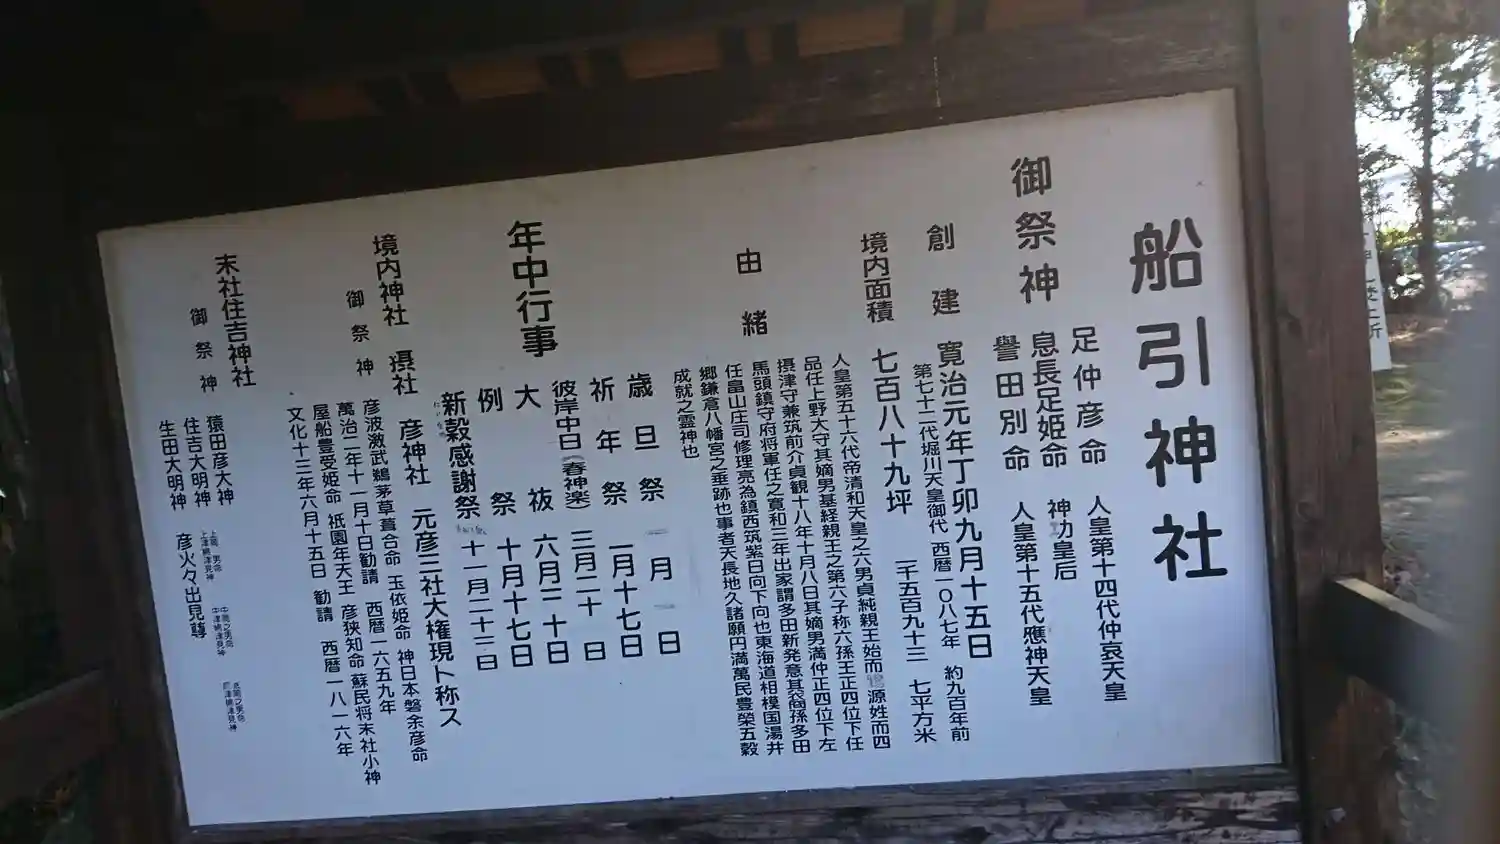 船引神社
御祭神
足仲彦命 人皇第十四代仲哀天皇
息長足姫命 神功皇后
誉田別命 人皇第十五代應神天皇
創建 寛治元年丁卯九月十五日
第七十二代堀川天皇御代 西暦一〇八七年 約九百年前
境内面積 七百八十九坪 二千五百九十三 七平方米
由緒
人皇第五十六代帝清和天皇之六男貞純親王始而 源姓而四
品任上野大守其嫡男基経親王之第六子称六孫王正四位下任
摂津守兼筑前介貞観十八年十月八日其嫡男満仲正四位下左
馬頭鎮守府将軍任之寛和三年出家謂多田新発意其裔孫多田
任畠山庄司修理亮為鎮西筑紫日向下向也東海道相模国湯井
郷鎌倉八幡宮之垂跡也事者天長地久諸願円満萬民豊榮五穀
成就之霊神也
年中行事
歳旦祭 一月一日
祈年祭 一月十七日
彼岸中日(春神楽) 三月二十日
大祓 六月三十日
例祭 十月十七日
新穀感謝祭 十一月二十三日
境内神社 摂社 彦神社 元彦三社大権現ト称ス
御祭神
彦波瀲武鵜茅草葺合命 玉依姫命 神日本磐余彦命
萬治二年十一月十日勧請 西暦一六五九年
屋船豊受姫命 祇園年天王 彦狭知命 蘇民将末社小神
文化十三年六月十五日 勧請 西暦一八一六年
末社住吉神社
御祭神
猿田彦大神
住吉大明神
生田大明神 彦火々出見尊